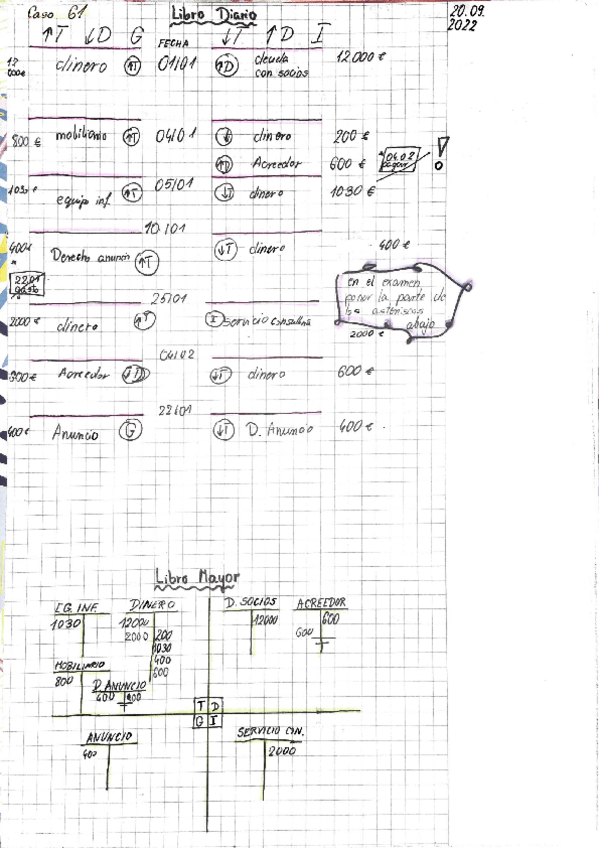 Caso 61
Libro Diario
20.09.
2022
↑T ↓D G FECHA ↓T ↑D I
12000€ dinero ↑T 01/01 ↑D deuda con socios 12.000 €
800 € mobiliario ↑T 04/01 ↓ dinero 200 €
↑D Acreedor 600 € * 04.02 pagar !
1030 € equip inf. ↑T 05/01 ↓T dinero 1030 €
10/01
400€ Derecho anuncio ↑T ↓T dinero 400 €
*
22/01
gasto
en el examen
poner la parte de
los asteriscos
abajo
25/01
2000 € dinero ↑T I Servicio consultoria 2000 €
04/02
600 € Acreedor ↓D ↓T dinero 600 €
22/01
400€ Anuncio G ↓T D. Anuncio 400 €
Libro Mayor
EQ. INF. DINERO D. SOCIOS ACREEDOR
1030 12000 12000 600
2000 200 600
1030
400
MOBILIARIO 600
800 D. ANUNCIO
400 400
T D
G I
ANUNCIO SERVICIO CON.
400 2000